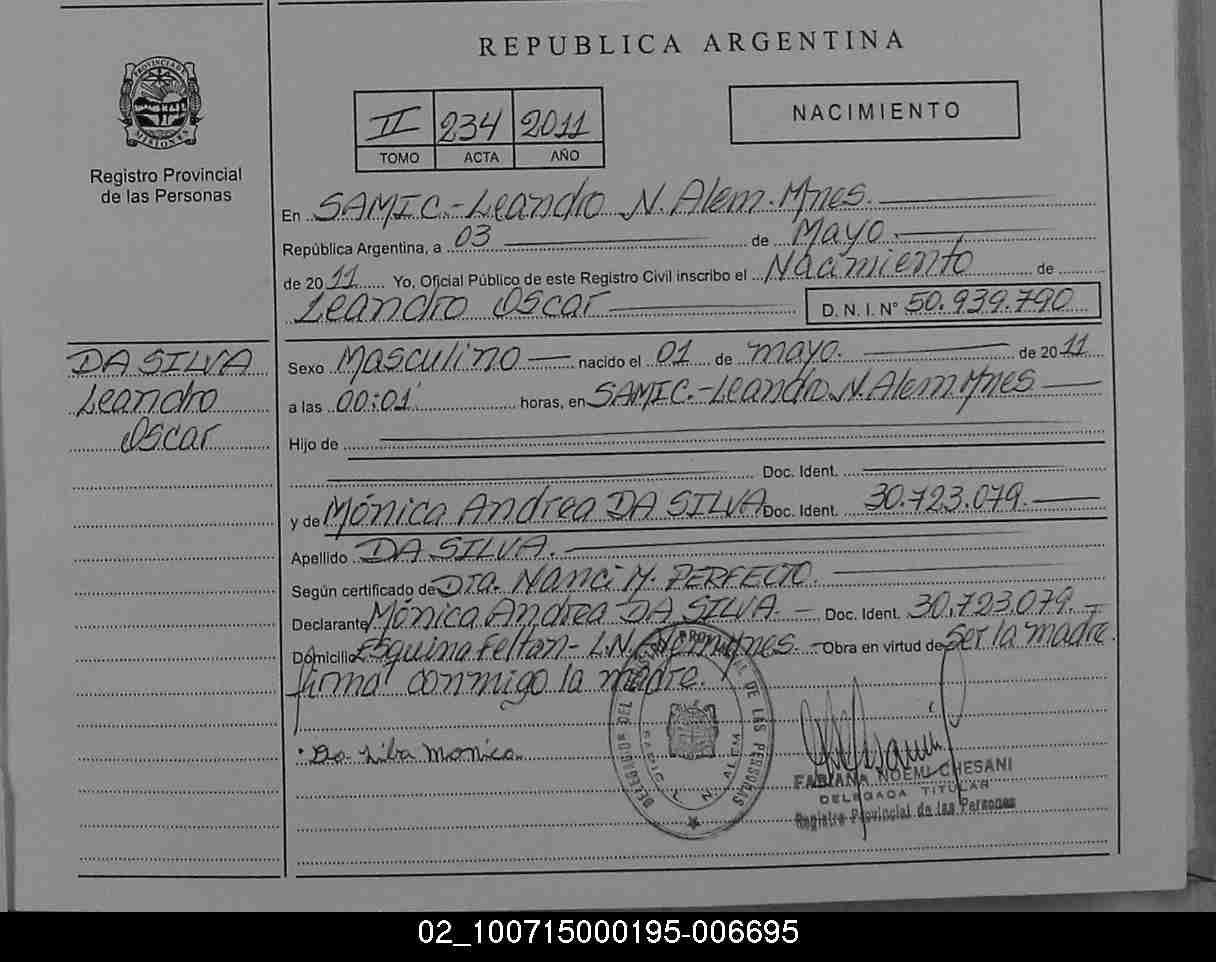 REPUBLICA ARGENTINA
PROVINCIA DE MISIONES
Registro Provincial
de las Personas
II 234 2011
TOMO ACTA AÑO
NACIMIENTO
En SAMIC.-Leandro N. Alem. Mnes.
República Argentina, a 03 de Mayo
de 2011 Yo, Oficial Público de este Registro Civil inscribo el Nacimiento de
Leandro Oscar D. N. I. N° 50.939.790
DA SILVA
Leandro
Oscar
Sexo Masculino nacido el 01 de mayo. de 2011
a las 00:01 horas, en SAMIC.-Leandro N. Alem Mnes
Hijo de
Doc. Ident.
y de Mónica Andrea DA SILVA Doc. Ident. 30.723.079.
Apellido DA SILVA.
Según certificado de Dra. Nanci M. PERFECTO.
Declarante Mónica Andrea DA SILVA. Doc. Ident. 30.723.079.
Domicilio Esquina Feltan- L.N.Alem Mnes. Obra en virtud de Ser la madre.
firma conmigo la madre.
Da Silba Monica
FABIANA NOEMI CHESANI
DELEGADA TITULAR
Registro Provincial de las Personas
02_100715000195-006695